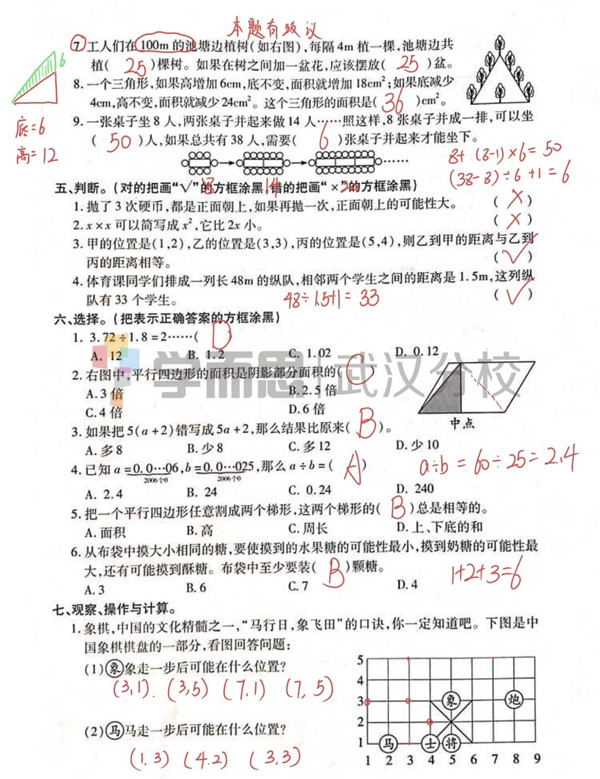 本题有歧议
⑦工人们在100m的池塘边植树(如右图),每隔4m植一棵,池塘边共
植( 25 )棵树。如果在树之间加一盆花,应该摆放( 25 )盆。
6
8.一个三角形,如果高增加6cm,底不变,面积就增加18cm²;如果底减少
4cm,高不变,面积就减少24cm²。这个三角形的面积是( 36 )cm²。
底=6
高=12
9.一张桌子坐8人,两张桌子并起来做14人……照这样,8张桌子并成一排,可以坐
( 50 )人,如果总共有38人,需要( 6 )张桌子并起来才能坐下。
8+(8-1)×6=50
(38-8)÷6+1=6
8 14 20
五、判断。(对的把画“√”的方框涂黑,错的把画“×”的方框涂黑)
1.抛了3次硬币,都是正面朝上,如果再抛一次,正面朝上的可能性大。 ( × )
2.x×x可以简写成x²,它比2x小。 ( × )
3.甲的位置是(1,2),乙的位置是(3,3),丙的位置是(5,4),则乙到甲的距离与乙到
丙的距离相等。 ( √ )
4.体育课同学们排成一列长48m的纵队,相邻两个学生之间的距离是1.5m,这列纵
队有33个学生。 48÷1.5+1=33 ( √ )
六、选择。(把表示正确答案的方框涂黑)
1. 3.72÷1.8=2……( D )
A. 12 B. 1.2 C. 1.02 D. 0.12
学而思 武汉分校
2.右图中,平行四边形的面积是阴影部分面积的( C )
A.3倍 B.2.5倍
C.4倍 D.6倍
中点
3.如果把5(a+2)错写成5a+2,那么结果比原来( B )。
A.多8 B.少8 C.多12 D.少10
4.已知a=0.0…06,b=0.0…025,那么a÷b=( A )
2006个0 2006个0
a÷b=60÷25=2.4
A. 2.4 B. 24 C. 0.24 D. 240
5.把一个平行四边形任意割成两个梯形,这两个梯形的( B )总是相等的。
A.面积 B.高 C.周长 D.上、下底的和
6.从布袋中摸大小相同的糖,要使摸到的水果糖的可能性最小,摸到奶糖的可能性最
大,还有可能摸到酥糖。布袋中至少要装( B )颗糖。
A.3 B.6 C.7 D.4 1+2+3=6
七、观察、操作与计算。
1.象棋,中国的文化精髓之一,“马行日,象飞田”的口诀,你一定知道吧。下图是中
国象棋棋盘的一部分,看图回答问题:
(1)象象走一步后可能在什么位置?
(3,1). (3,5) (7,1) (7,5)
(2)马马走一步后可能在什么位置?
(1,3) (4,2) (3,3)
5
4
3 象 炮
2
1 马 士 将
1 2 3 4 5 6 7 8 9